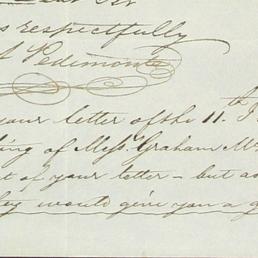 s respectfully
Pedimonte
your letter of the 11th
ing of Mess. Graham Mc
t of your letter – but as
ley would give you a g